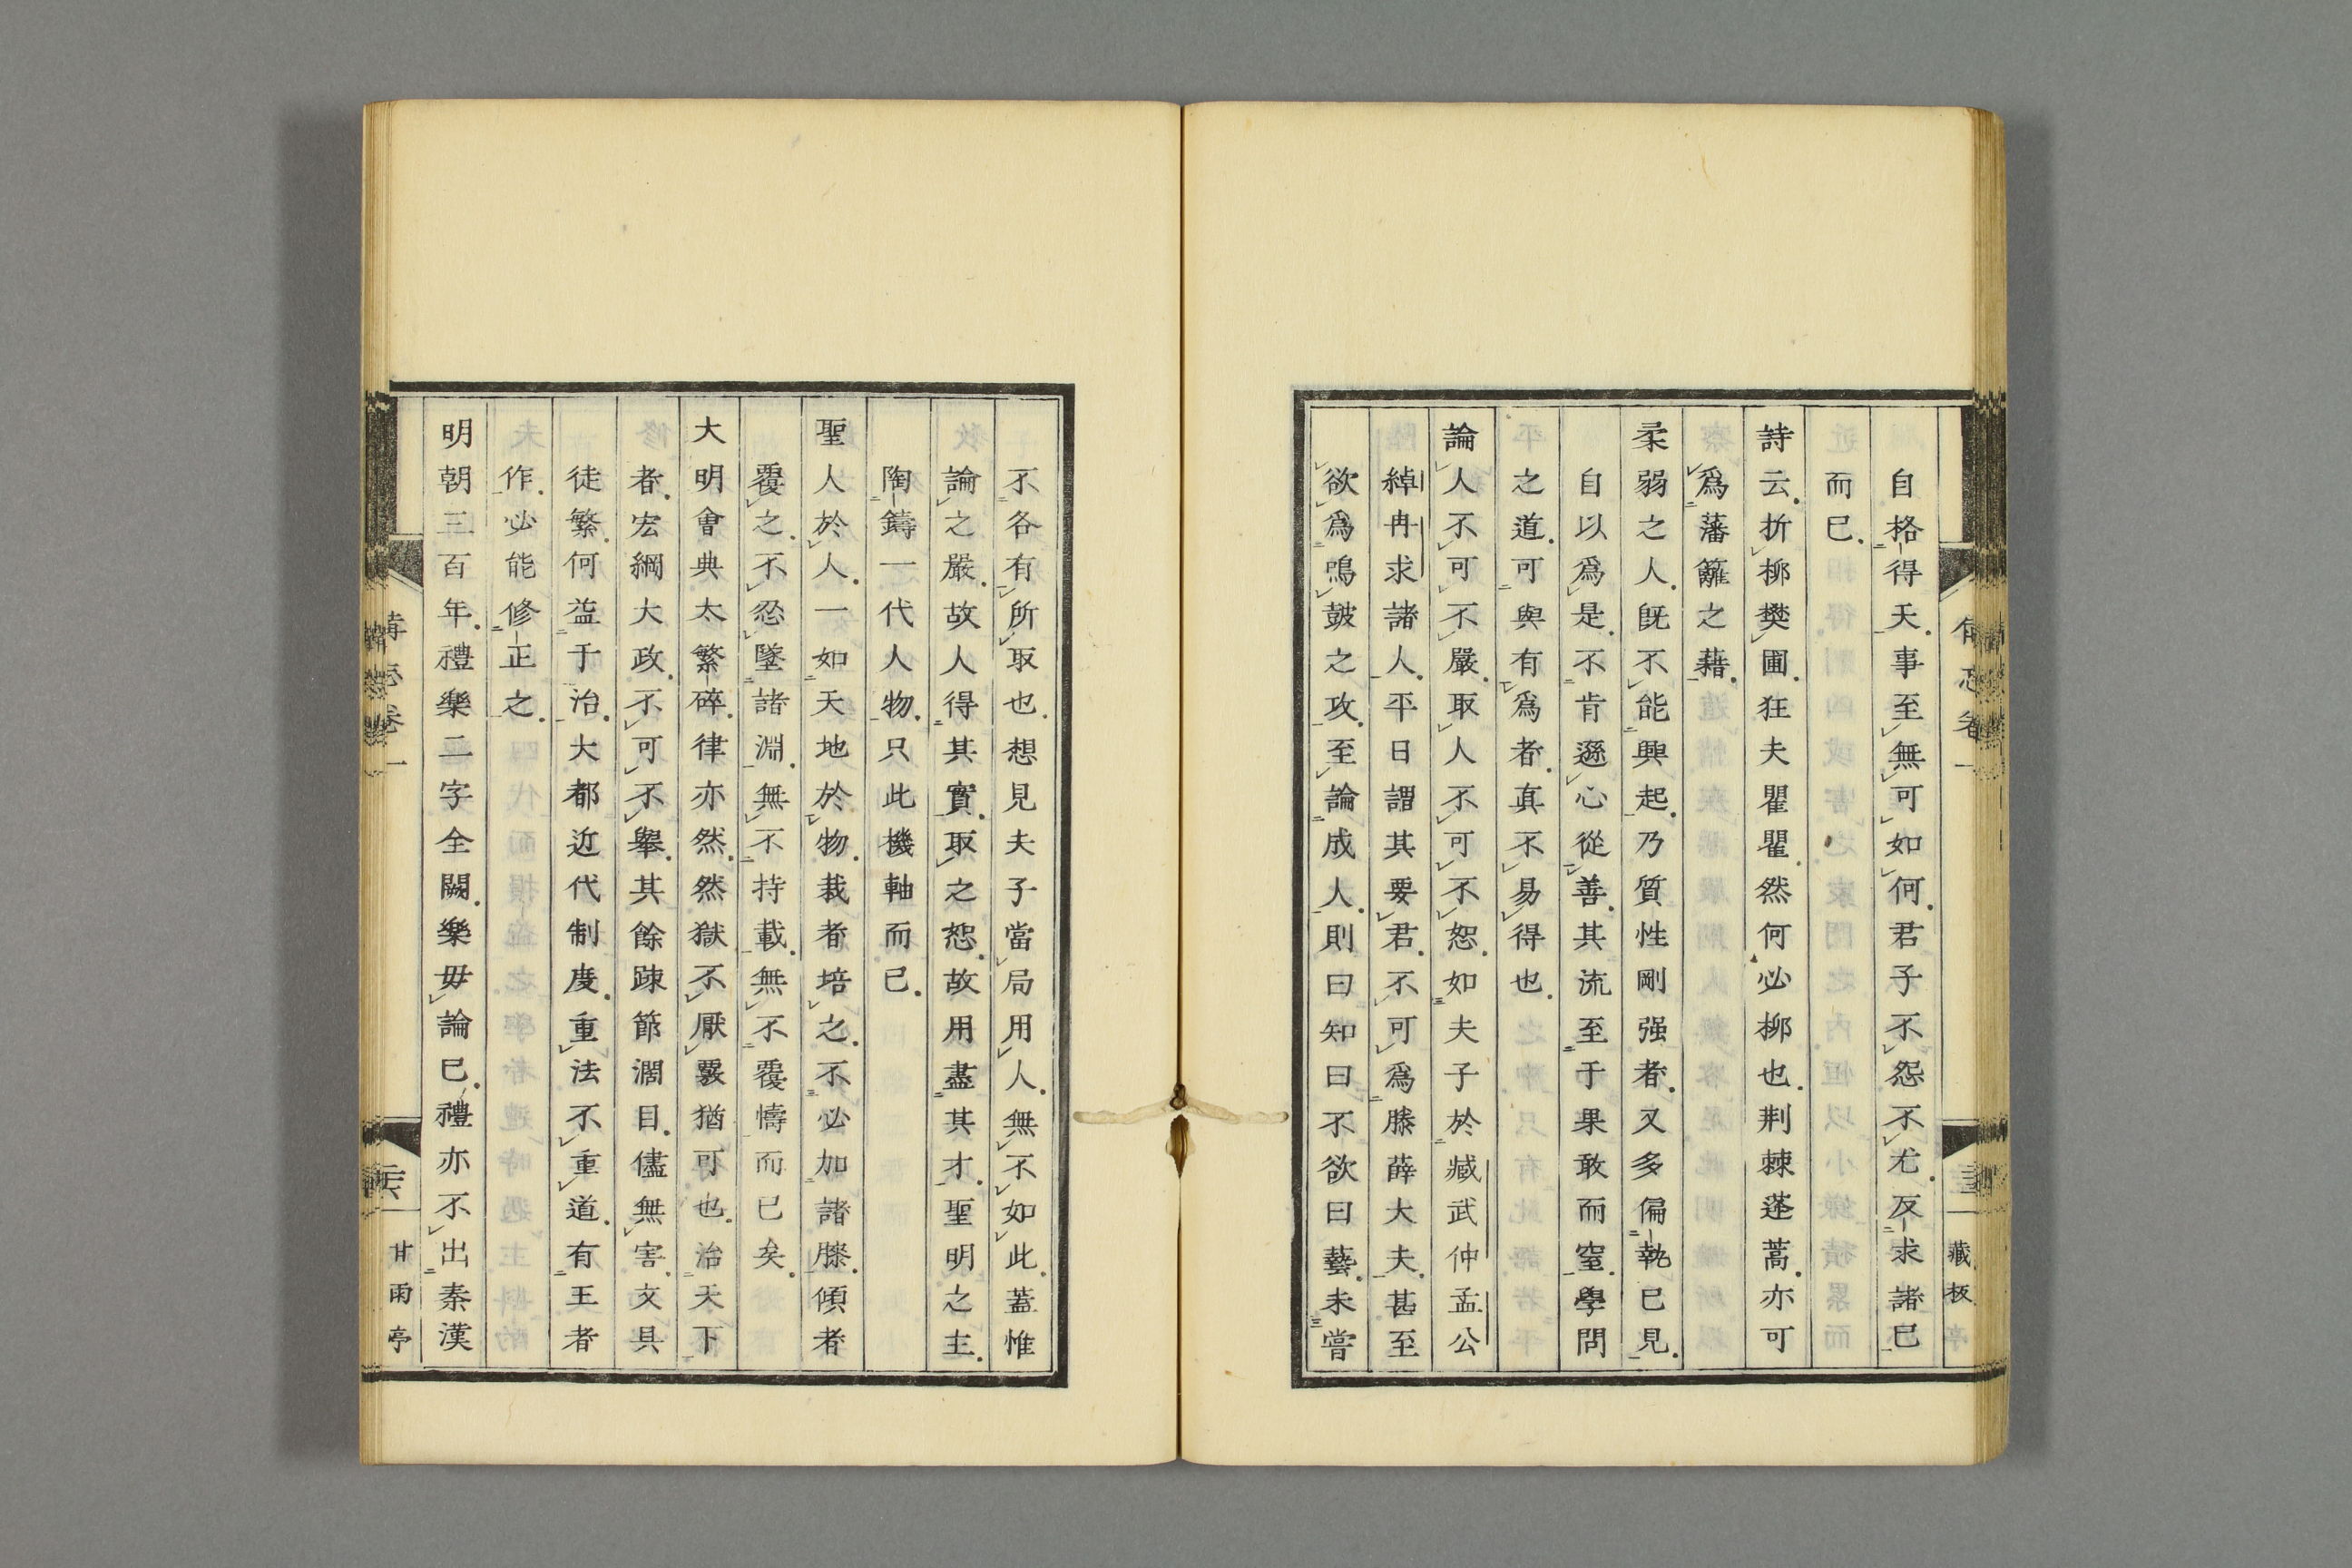 自格得天事至無可如何君子不怨不尤反求諸已
而已
詩云折柳樊圃狂夫瞿瞿然何必柳也荆棘蓬蒿亦可
爲藩籬之藉
柔弱之人既不能興起乃質性剛强者又多偏執已見
自以爲是不肯遜心從善其流至于果敢而窒學問
之道可與有爲者真不易得也
論人不可不嚴取人不可不恕如夫子於臧武仲孟公
綽冉求諸人平日謂其要君不可爲滕薛大夫甚至
欲爲鳴皷之攻至論成人則曰知曰不欲曰藝未嘗
不各有所取也想見夫子當局用人無不如此蓋惟
論之嚴故人得其實取之恕故用盡其才聖明之主
陶鑄一代人物只此機軸而已
聖人於人一如天地於物栽者培之不必加諸膝傾者
覆之不忍墜諸淵無不持載無不覆幬而已矣
大明會典太繁碎律亦然然獄不厭覈猶可也治天下
者宏綱大政不可不舉其餘踈節濶目儘無害文具
徒繁何益于治大都近代制度重法不重道有王者
作必能修正之
明朝三百年禮樂二字全闕樂毋論已禮亦不出秦漢
藏板
卷一
甘雨亭